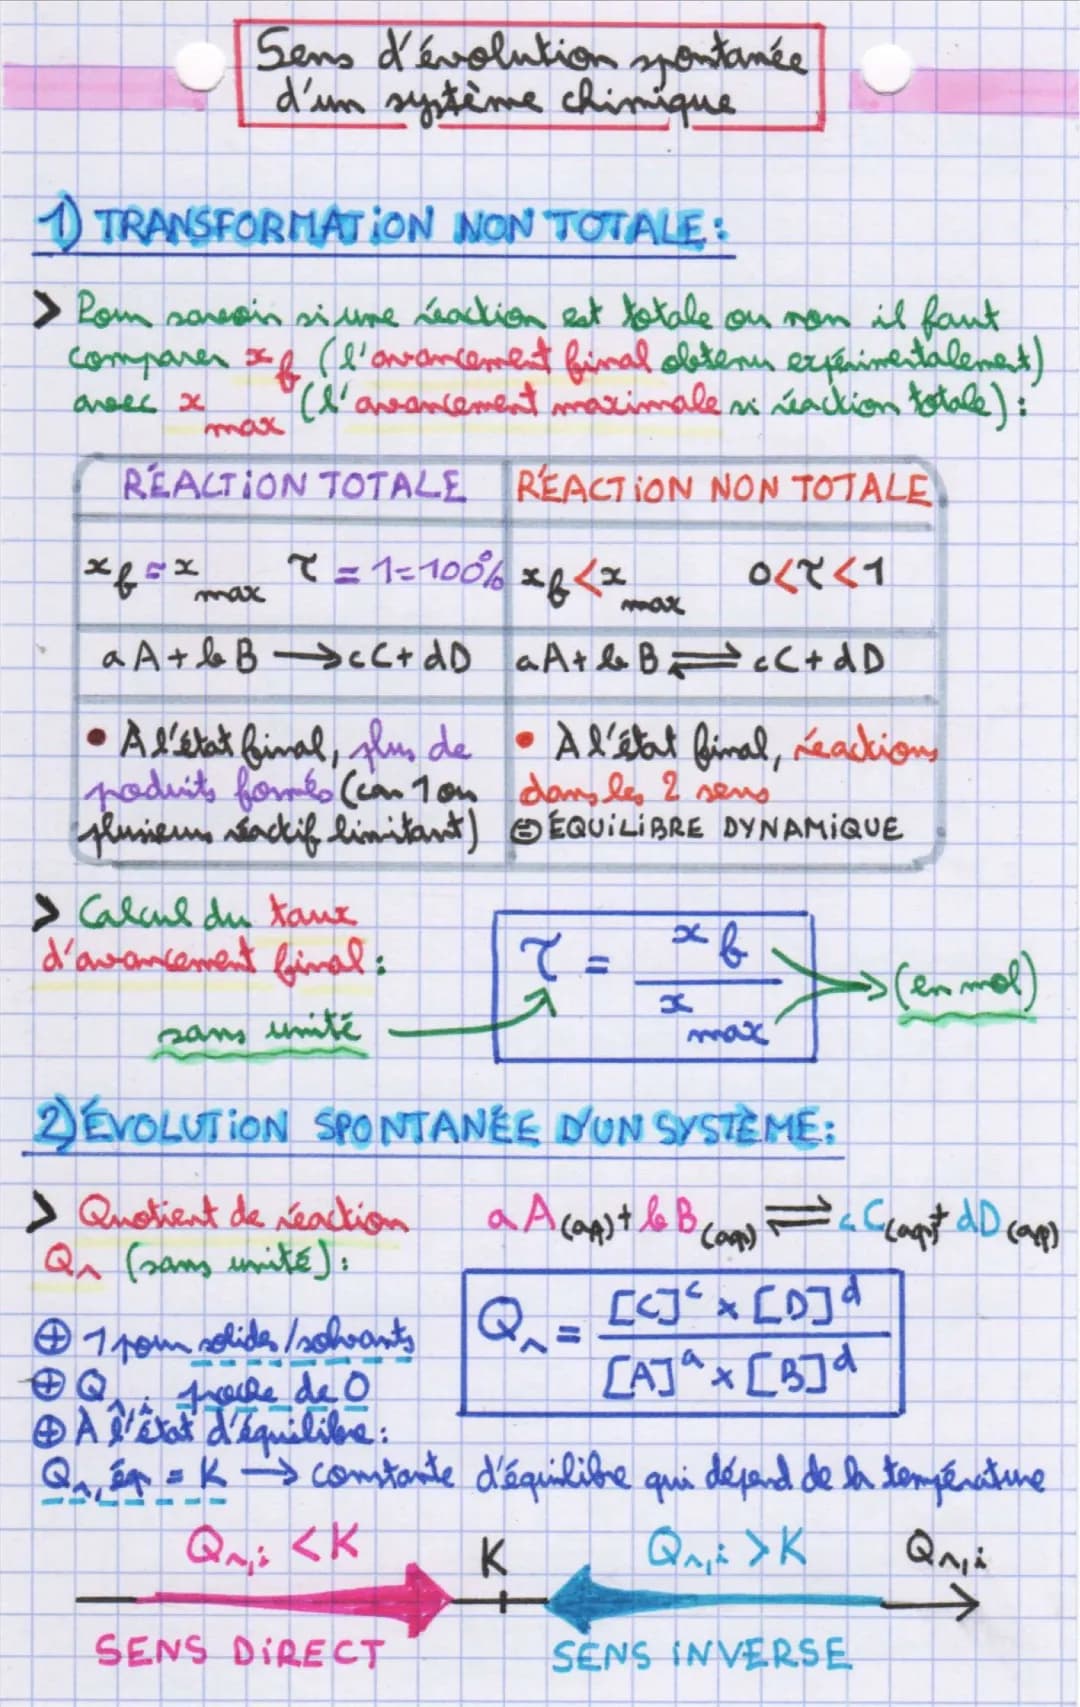 Sens d'évolution spontanée
d'un système chimique
1) TRANSFORMATION NON TOTALE :
> Pour savoir si une réaction est totale ou non il faut
comparer x_f (l'avancement final obtenu expérimentalement)
avec x_max (l'avancement maximale si réaction totale) :
RÉACTION TOTALE
RÉACTION NON TOTALE
x_f = x_max τ = 1 = 100%
x_f < x_max 0 < τ < 1
aA + bB → cC + dD
aA + bB ⇌ cC + dD
• À l'état final, plus de
produits formés (car 1 ou
plusieurs réactif limitant)
• À l'état final, réactions
dans les 2 sens
⊜ ÉQUILIBRE DYNAMIQUE
> Calcul du taux
d'avancement final :
sans unité
τ = x_f / x_max
(en mol)
2) ÉVOLUTION SPONTANÉE D'UN SYSTÈME :
> Quotient de réaction
Qr (sans unité) :
aA(aq) + bB(aq) ⇌ cC(aq) + dD(aq)
Qr = [C]^c × [D]^d / [A]^a × [B]^d
⊕ 1 pour solides/solvants
⊕ Qr,i proche de 0
⊕ À l'état d'équilibre :
Qr,éq = K → constante d'équilibre qui dépend de la température
Qr,i < K
K
Qr,i > K
Qr,i
SENS DIRECT
SENS INVERSE